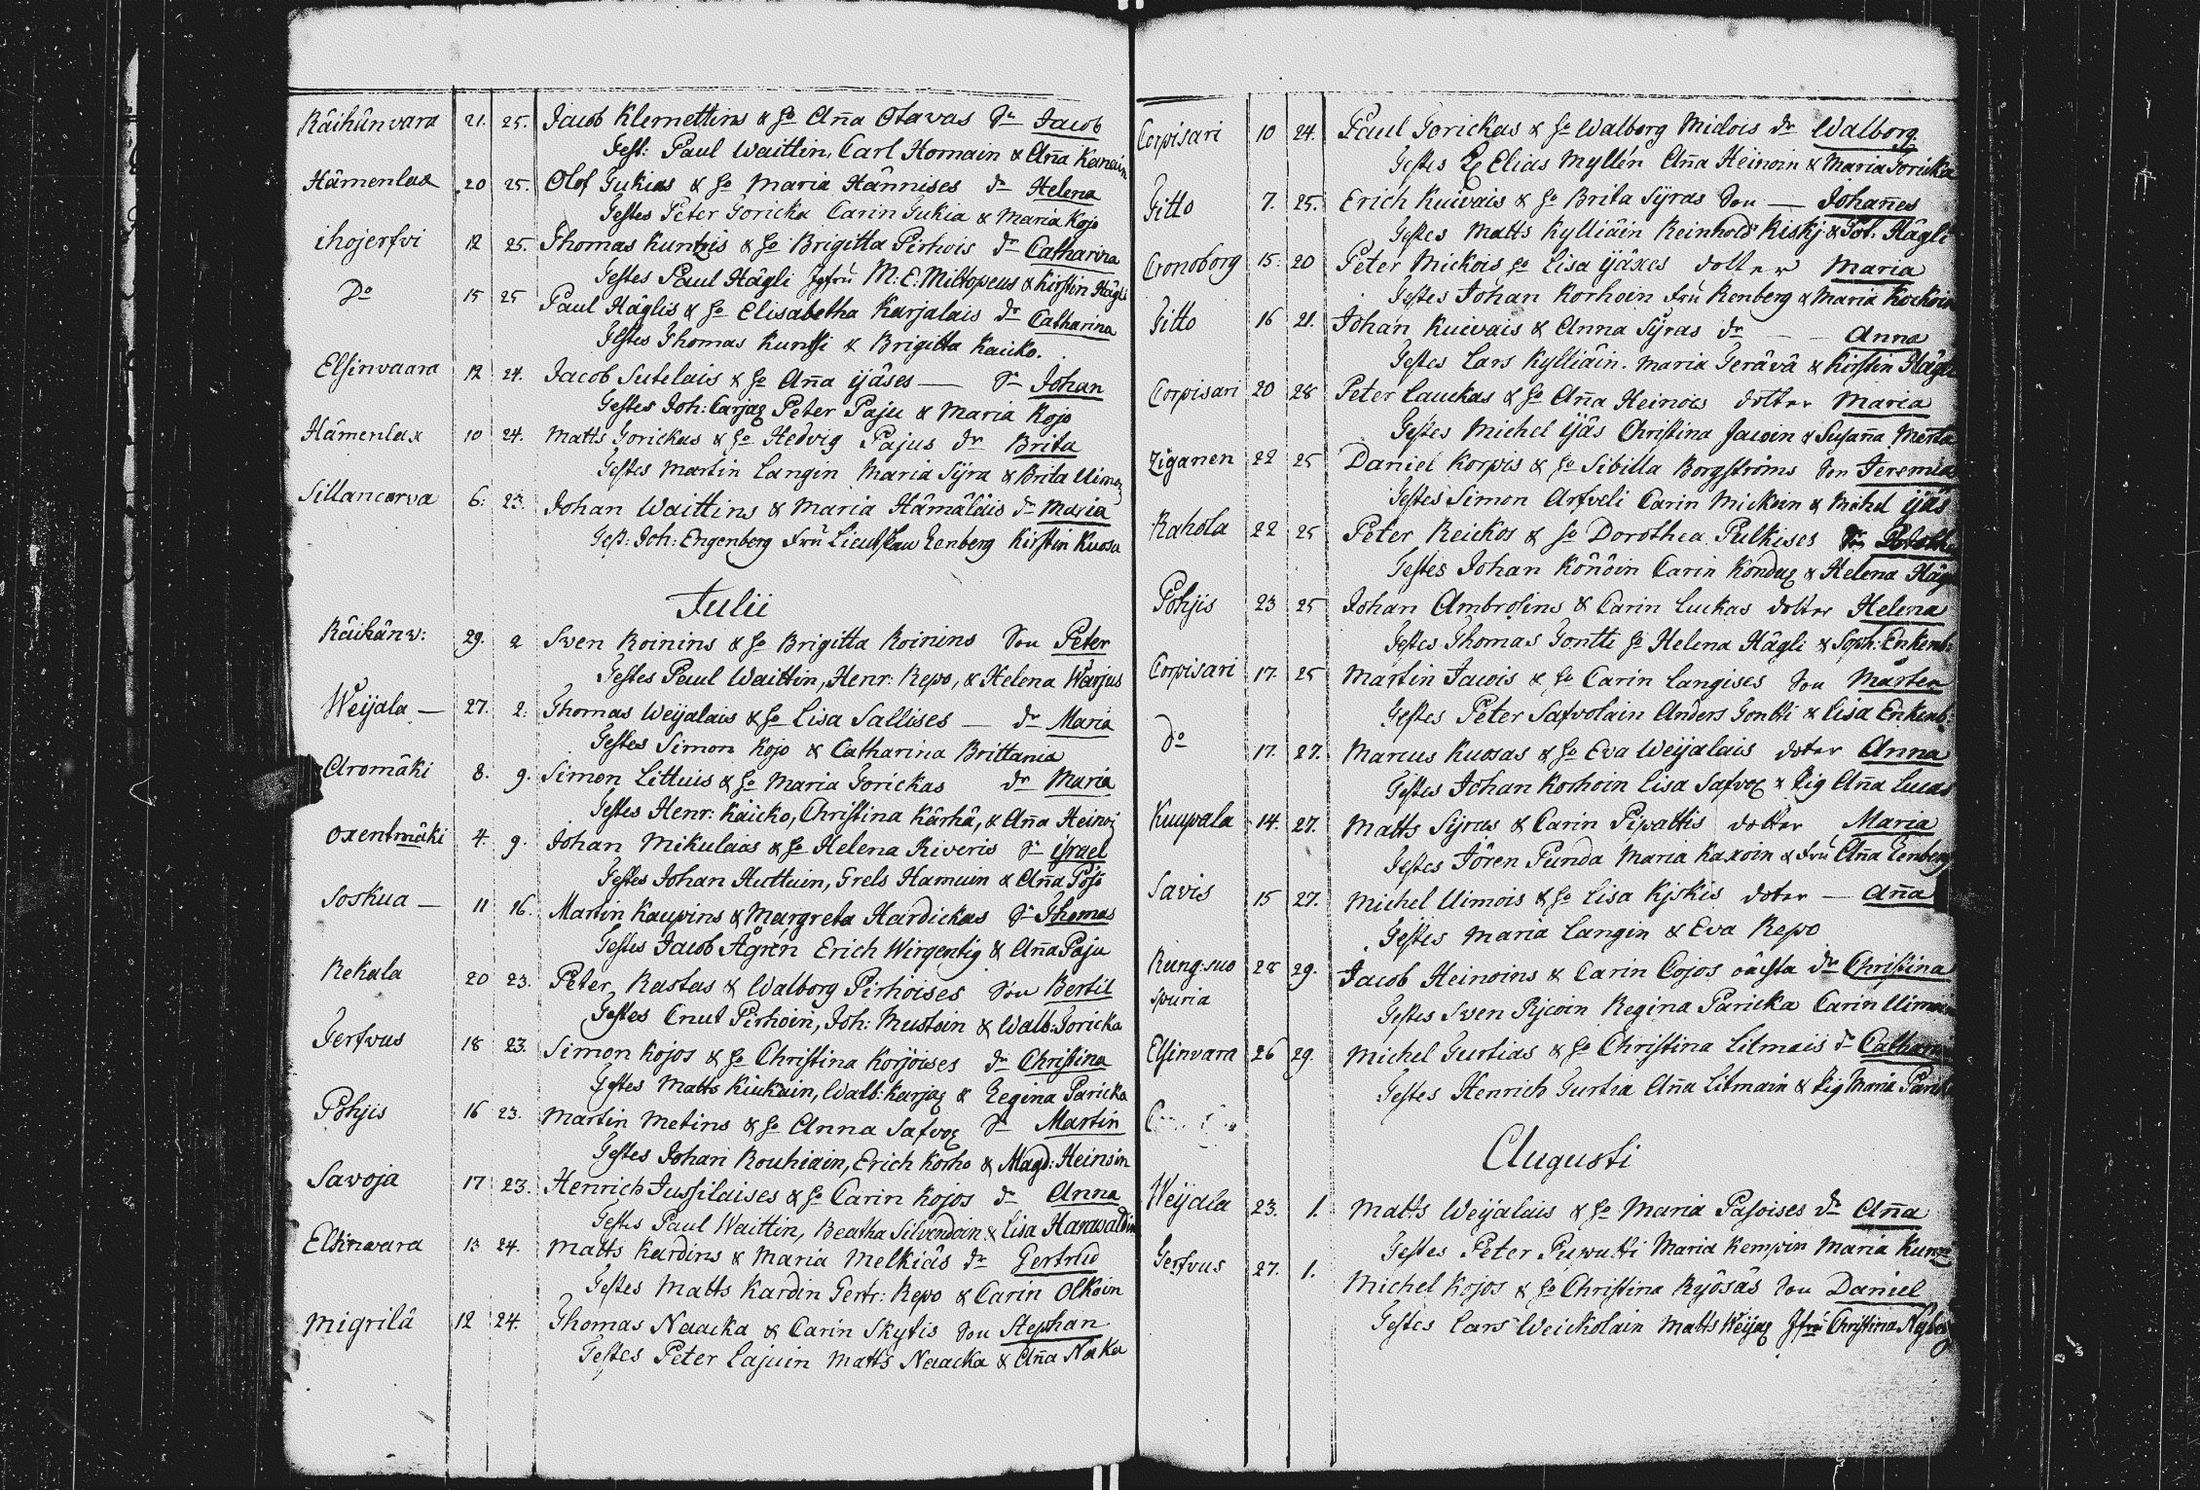 Räihänvara 21. 25. Jacob Klemettins & Ho Aña Otavas Sn Jacob
Test: Paul Waittin, Carl Homain & Aña Kanain
Hämenlax 20 25. Olof Jukias & Ho Maria Hännises dr Helena
Testes Peter Toricka Carin Jukia & Maria Kojo
ihojerfvi 12 25. Thomas Kuntzis & Ho Brigitta Pirhois dr Catharina
Testes Paul Hägli Jgfru M. E. Miltopeus & Kirstin Hägli
Do 15 25 Paul Häglis & Ho Elisabetha Karjalais dr Catharina
Testes Thomas Kuntzi & Brigitta Kaicko.
Elsinvaara 12 24. Jacob Sutelais & Ho Aña ijäses — Sn Johan
Testes Joh: Carjaz Peter Paju & Maria Kojo
Hämenlax 10 24. Matts Torickas & Ho Hedvig Pajus dr Brita
Testes Martin Langin Maria Sÿra & Brita Uimoz
Sillancorva 6: 23. Johan Waittins & Maria Hämäläis dr Maria
Test: Joh: Engenberg Fru Lieutskan Enberg Kirstin Kuosa
Julii
Räihänv: 29. 2 Sven Roinins & Ho Brigitta Roinins Son Peter
Testes Paul Waittin, Henr: Repo, & Helena Warjus
Weijala — 27. 2: Thomas Weijalais & Ho Lisa Sallises — dr Maria
Testes Simon Kojo & Catharina Brittania
Aromäki 8. 9. Simon Littuis & Ho Maria Torickas dr Maria
Testes Henr: Käicko, Christina Kärhä, & Aña Heinoz
Oxentmäki 4. 9. Johan Mikulais & Ho Helena Riveris Sn israel
Testes Johan Huttuin, Grels Hamuin & Aña Poso
Soskua — 11 16. Martin Kaupins & Margreta Hardickas Sn Thomas
Testes Jacob Ågrén Erich Wirgentig & Aña Paju
Rekala 20 23. Peter Rastas & Walborg Pirhoises Son Bertil
Testes Cnut Pirhoin, Joh: Mustoin & Walb: Toricka
Terfvus 18 23. Simon Kojos & Ho Christina Korjoises dr Christina
Testes Matts Kiukain, Walb: Karjaz & Regina Paricka
Pohjis 16 23. Martin Metins & Ho Anna Safvoz Sn Martin
Testes Johan Rouhiain, Erich Korho & Magd: Heinoin
Savoja 17 23. Henrich Jussilaises & Ho Carin Kojos dr Anna
Testes Paul Waittin, Beatha Silvendoin & Lisa Harawaldin
Elsinvara 13 24. Matts Kardins & Maria Melkiäs dr Gertrud
Testes Matts Kardin Gertr: Repo & Carin Olkoin
Migrilä 12 24. Thomas Naacka & Carin Skytis Son Stephan
Testes Peter Lajuin Matts Naacka & Aña Naka
Corpisari 10 24. Paul Torickas & Ho Walborg Midois dr Walborg
Testes Elias Myllén Aña Heinoin & Maria Toricka
Titto 7. 25. Erich Kuivais & Ho Brita Sÿras Son — Johañes
Testes Matts Kylliäin Reinhold Kiskj & Tob. Hägli
Cronoborg 15. 20 Peter Mickois Ho Lisa ijäxes dotter Maria
Testes Johan Korhoin Fru Renberg & Maria Kockoin
Titto 16 21. Johan Kuivais & Anna Sÿras dr — Anna
Testes Lars Kylliäin. Maria Terävä & Kirstin Hägli
Corpisari 20 28 Peter Lauckas & Ho Aña Heinois dotter Maria
Testes Michel ijäs Christina Jacoin & Susaña
Ziganen 22 25 Daniel Korpis & Ho Sibilla Borgströms Son Jeremias
Testes Simon Artveli Carin Mickoin & Michel ijäs
Rahola 22 25 Peter Reickos & Ho Dorothea Pulkises
Testes Johan Könöin Carin Konduz & Helena Hägli
Pohjis 23 25 Johan Ambrosins & Carin Luckas dotter Helena
Testes Thomas Tontti Ho Helena Hägli & Soph: Enkenb:
Corpisari 17. 25 Martin Jacois & Ho Carin Langises Son Mårten
Testes Peter Safvolain Anders Tontti & Lisa Enkenb:
do 17. 27. Marcus Kuosas & Ho Eva Weijalais doter Anna
Testes Johan Korhoin Lisa Safvoz & Pig Aña Lucas
Kuupala 14. 27. Matts Sÿras & Carin Pipattis dotter Maria
Testes Jören Punda Maria Kaxoin & Fru Aña Enberg
Savis 15 27. Michel Uimois & Ho Lisa Kjskis doter — Aña
Testes Maria Langin & Eva Repo
Kung:suo 28 29. Jacob Heinoins & Carin Cojos oächta dr Christina
spuria Testes Sven Pijcoin Regina Paricka Carin
Elsinvara 26 29. Michel Turtias & Ho Christina Litmais dr Cathar
Testes Henrich Turtia Aña Litmain & Pig Maria
Augusti
Weijala 23. 1. Matts Weijalais & Ho Maria Pasoises dr Aña
Testes Peter Puputti Maria Kempin Maria
Terfvus 27. 1. Michel Kojos & Ho Christina Ryösäs Son Daniel
Testes Lars Weickolain Matts Weijaz Jfru Christina Nyberg